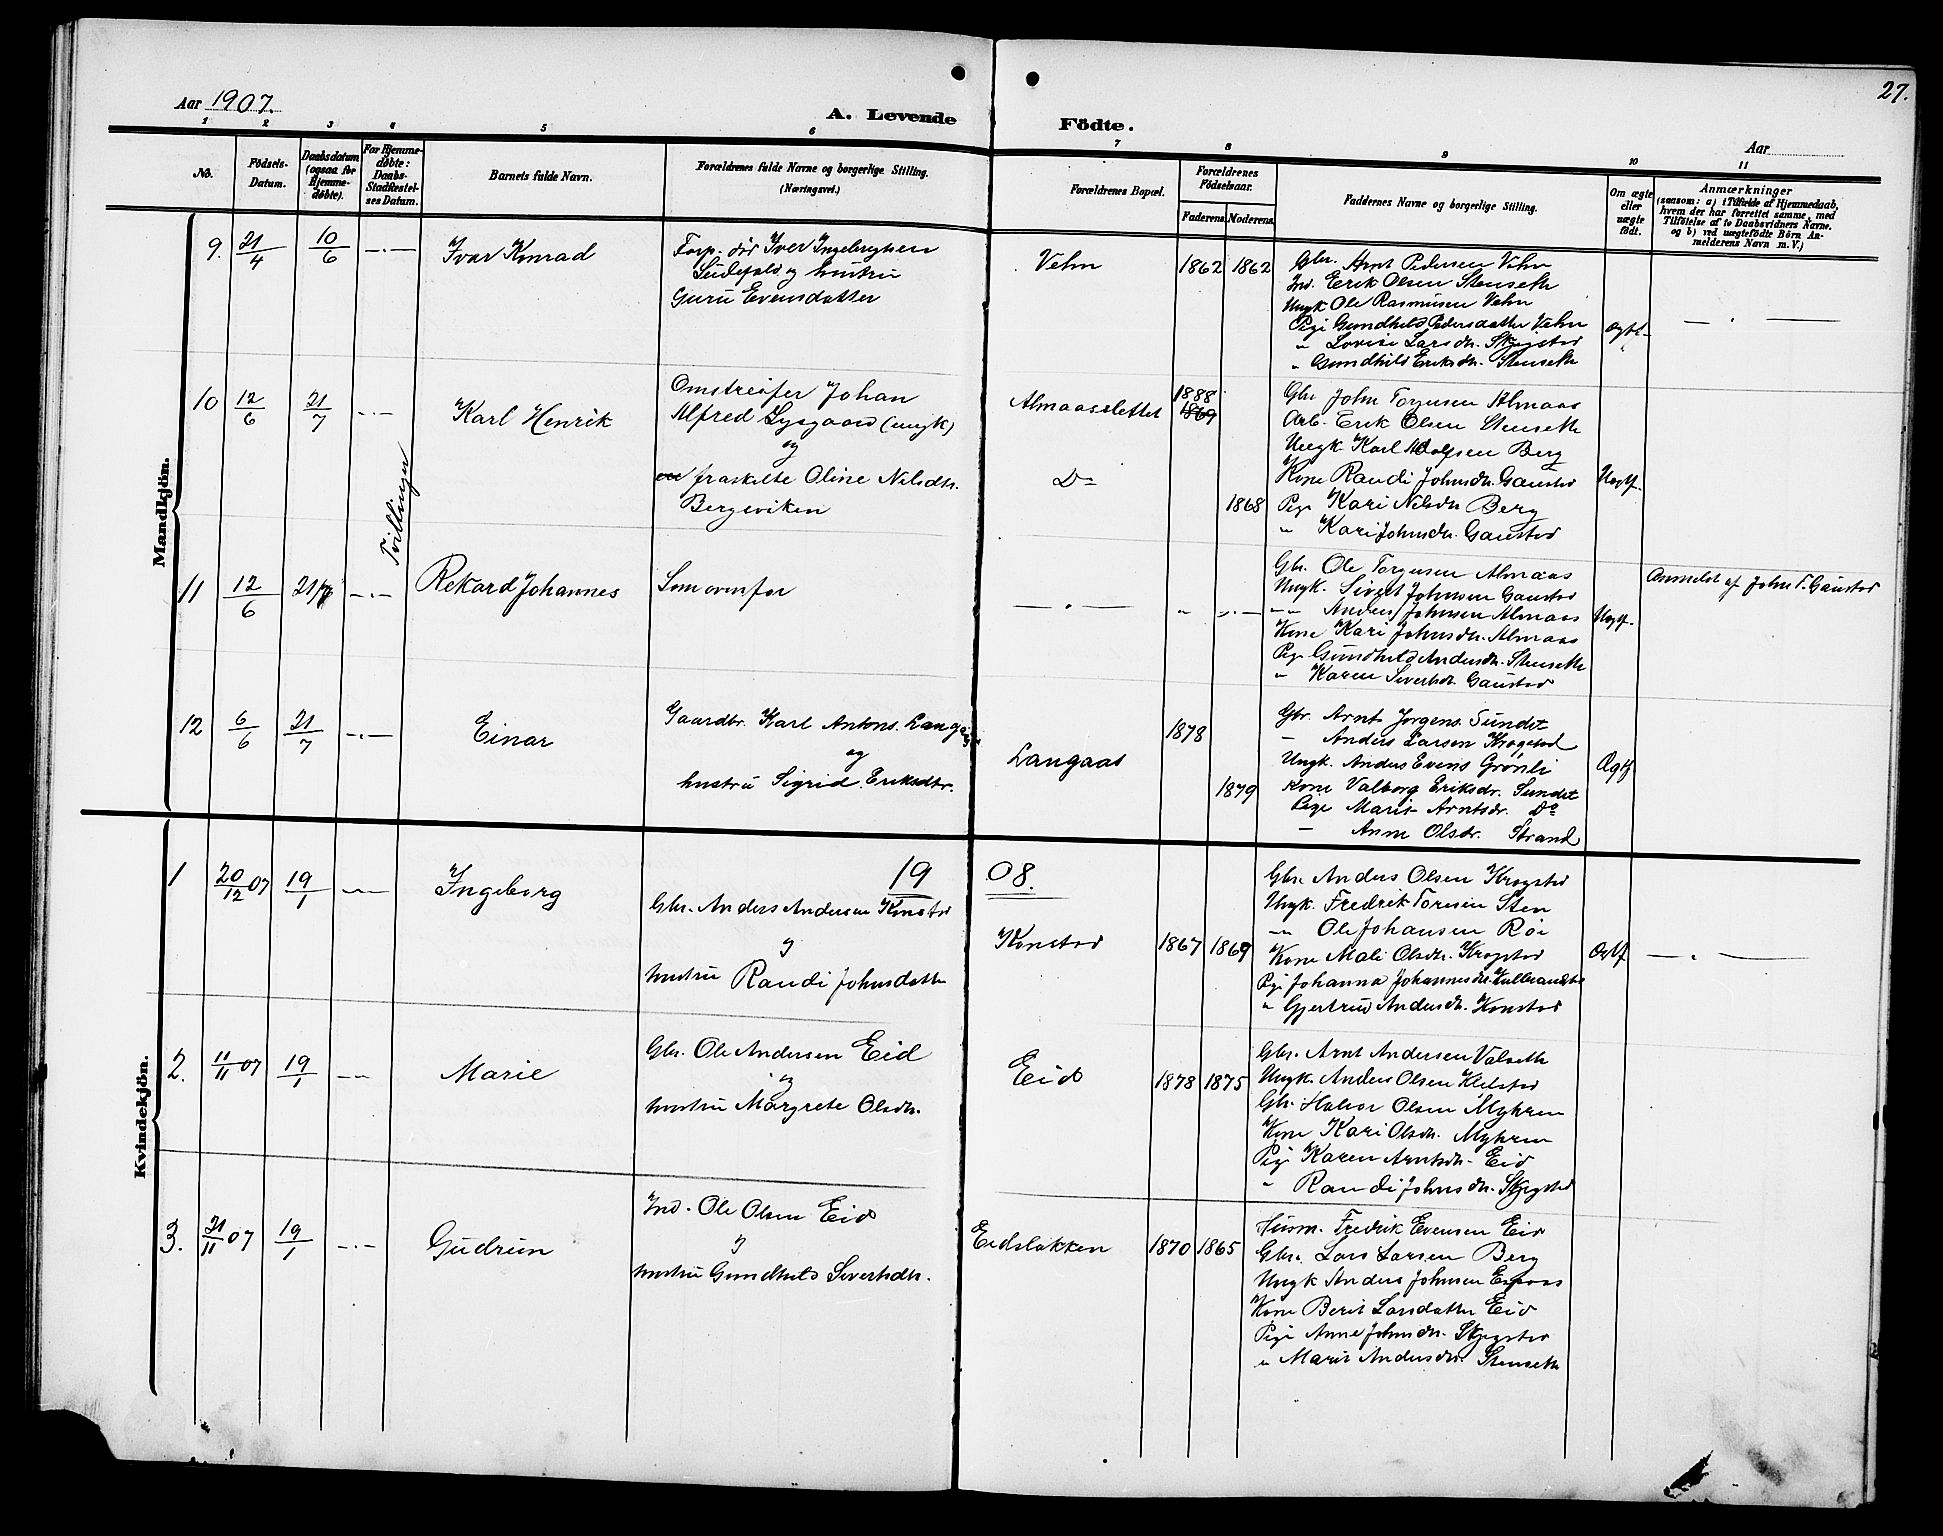 27.
Aar 1907.
A. Levende Födte.
Aar
1 2 3 4 5 6 7 8 9 10 11
No.
Födsels-Datum.
Daabsdatum (ogsaa for Hjemme-døbte).
For Hjemme-døbte: Daabs-Stadfæstel-ses Datum.
Barnets fulde Navn.
Forældrenes fulde Navne og borgerlige Stilling. (Næringsvei.)
Forældrenes Bopæl.
Forældrenes Födselsaar.
Faderens. Moderens.
Faddernes Navne og borgerlige Stilling.
Om ægte eller uægte födt.
Anmærkninger
(saasom: a) i Tilfælde af Hjemmedaab, hvem der har forrettet samme, med Tilføielse af to Daabsvidners Navne. og b) ved uægtefødte Börn An-melderens Navn m. V.)
Mandkjön.
9. 21/4 10/6 —·— Ivar Konrad
Forp. dör Iver Ingebrigtsen
og hustru
Guru Evensdatter
Vehn 1862 1862
Gbr. Arnt Pedersen Vehn
Ind. Erik Olsen Stenseth
Ungk Ole Rasmusen Vehn
Pige Gundhild Pedersdatter Vehn
" Lovise Larsdtr. Skjegstad
" Gundhild Eriksdtr. Stenseth
Ægte
— " —
10 12/6 21/7 —·— Karl Henrik
Omstreifer Johan
Alfred Lysgaard (ungk)
og
fraskilte Oline Nilsdtr.
Bergeviken
Almaasslettet 1888
1869
Do 1868
Gbr John Torgersen Almaas
Arb. Erik Olsen Stenseth
Ungk Karl Adolfsen Berg
Kone Randi Johnsdtr. Gaustad
Pige Kari Nilsdtr Berg
" Kari Johnsdtr. Gaustad
Uægtf.
Tvillinger
11 12/6 21/7 —·— Rekard Johannes
Som ovenfor
—·— " —·—
Gbr. Ole Torgersen Almaas
Ungk. Sivert Johnsen Gaustad
" " Anders Johnsen Almaas
Kone Kari Johnsdtr. Almaas
Pige Gundhild Andersdtr. Stenseth
" Karen Sivertsdtr. Gaustad
Uægtf.
Anmeldt af John T. Gaustad
12 6/6 21/7 —·— Einar
Gaardbr. Karl Antons. Langaas
og
hustru Sigrid Eriksdtr.
Langaas 1878 1879
Gbr. Arnt Jørgens. Sundet
— Anders Larsen Krogstad
Ungk. Anders Evens Grønli
Kone Valborg Eriksdr. Sundet
Pige Marit Arntsdr. Do
— Anne Olsdr. Strand
Ægtf
Kvindekjön.
1908.
1 20/12 07 19/1 —·— Ingeborg
Gbr. Anders Andersen Konstad
og
hustru Randi Johnsdatter
Konstad 1867 1869
Gbr. Anders Olsen Krogstad
Ungk. Fredrik Toresen Sten
—"— Ole Johansen Røe
Kone Mali Olsdtr. Krogstad
Pige Johanna Johannesdtr.
" Gjertrud Andersdtr. Konstad
Ægtf
— " —
2. 11/11 07 19/1 —·— Marie
Gbr. Ole Andersen Eid
og
hustru Margrete Olsdtr.
Eid 1878 1875
Gbr. Arnt Andersen Valseth
Ungk. Anders Olsen Kjelstad
Gbr. Halvor Olsen Myhren
Kone Kari Olsdtr. Myhren
Pige Karen Arntsdtr. Eid
" Randi Johnsdtr. Skjegstad
3. 21/11 07 19/1 —·— Gudrun
Ind. Ole Olsen Eid
og
hustru Gundhild Sivertsdtr.
Eidsløkken 1870 1865
Husm. Fredrik Evensen Eid
Gbr. Lars Larsen Berg
Ungk Anders Johnsen
Kone Berit Larsdatter Eid
Pige Anne Johnsdtr. Skjegstad
" Marit Andersdtr. Stenseth